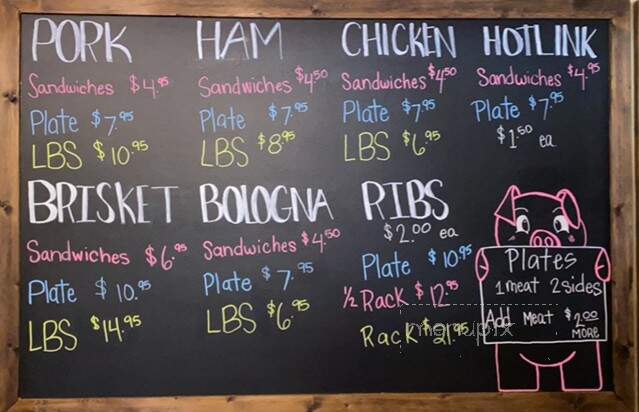 PORK
Sandwiches $4.95
Plate $7.95
LBS $10.95
HAM
Sandwiches $4.50
Plate $7.95
LBS $8.95
CHICKEN
Sandwiches $4.50
Plate $7.95
LBS $6.95
HOTLINK
Sandwiches $4.95
Plate $7.95
$1.50 ea
BRISKET
Sandwiches $6.95
Plate $10.95
LBS $14.95
BOLOGNA
Sandwiches $4.50
Plate $7.95
LBS $6.95
RIBS
$2.00 ea
Plate $10.95
1/2 Rack $12.95
Rack $21.95
Plates
1 meat 2 sides
Add Meat $2.00
MORE
menupix